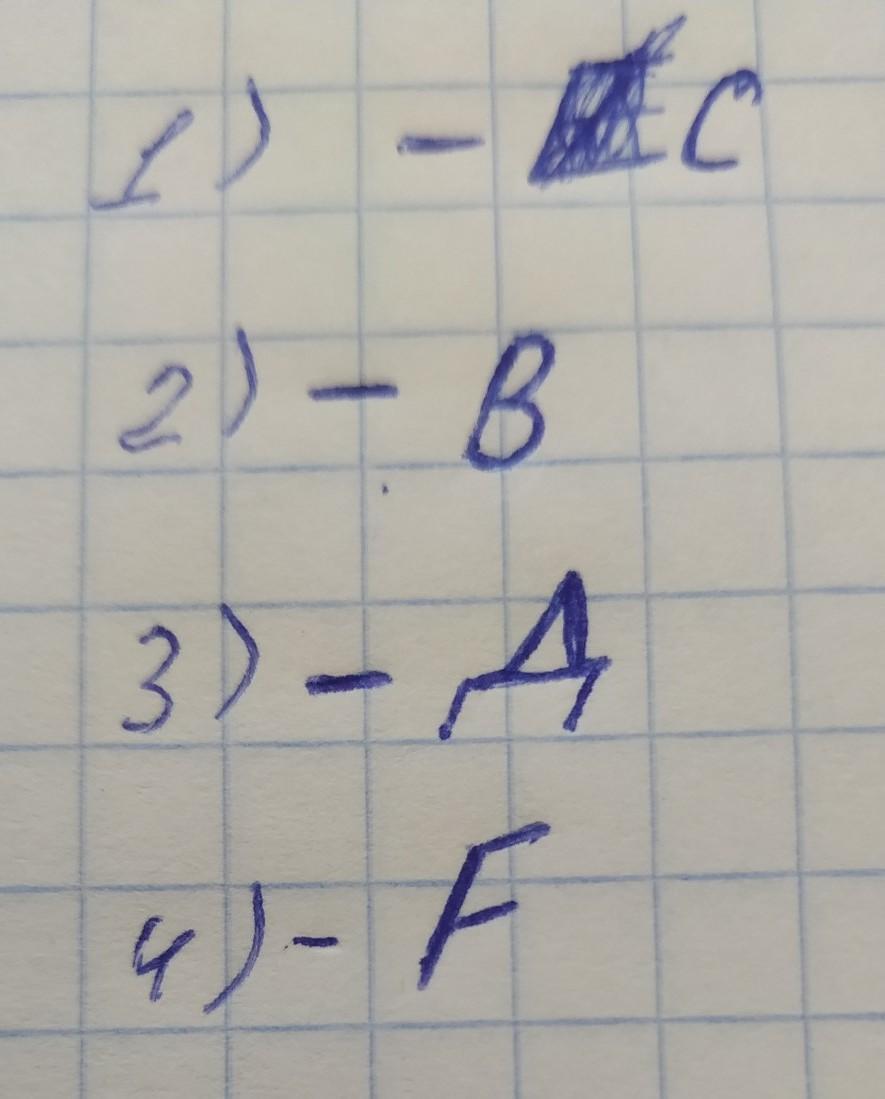 1) - C
2) - B
3) - Д
4) - F